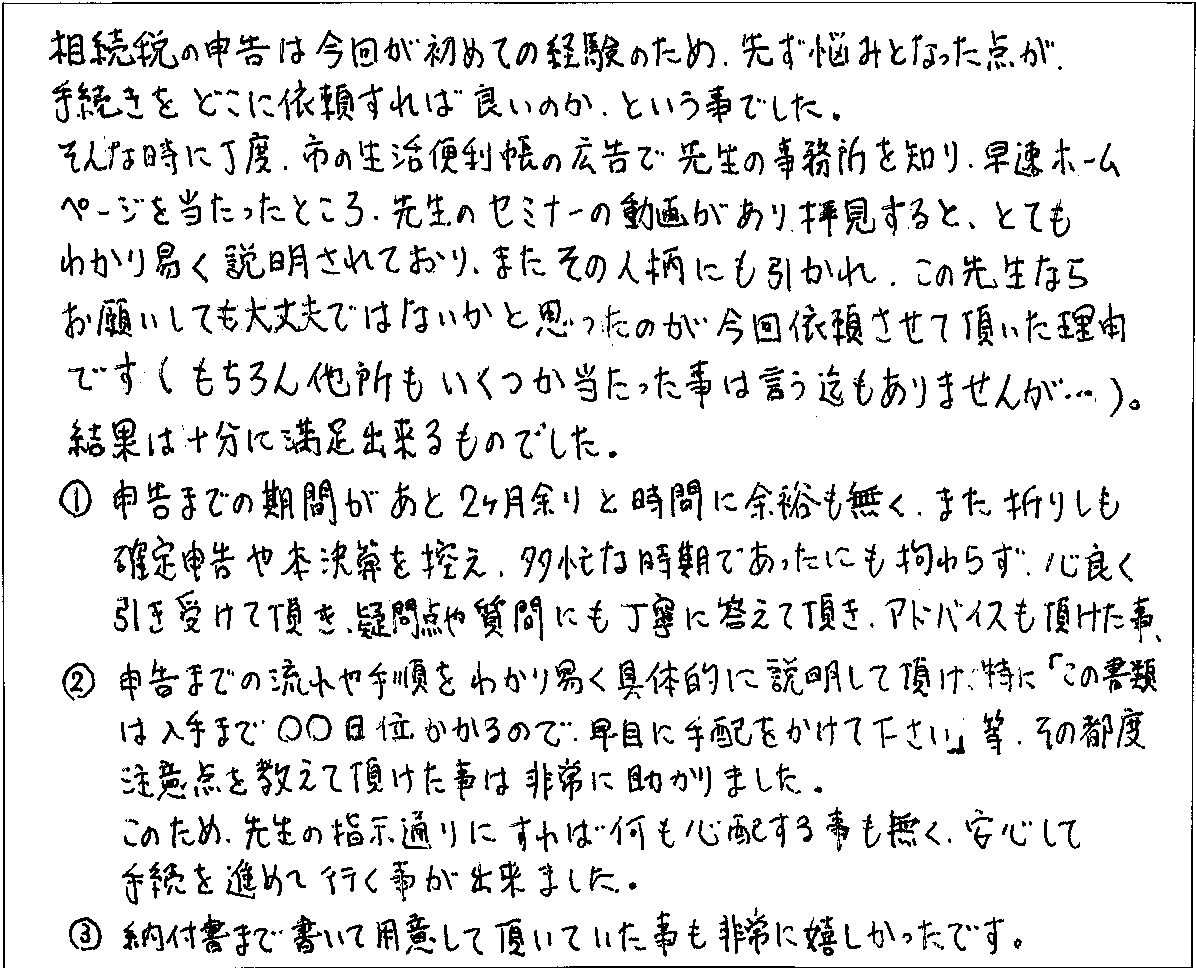 相続税の申告は今回が初めての経験のため、先ず悩みとなった点が、
手続きをどこに依頼すれば良いのか、という事でした。
そんな時に丁度、市の生活便利帳の広告で先生の事務所を知り、早速ホーム
ページを当たったところ、先生のセミナーの動画があり拝見すると、とても
わかり易く説明されており、またその人柄にも引かれ、この先生なら
お願いしても大丈夫ではないかと思ったのが今回依頼させて頂いた理由
です(もちろん他所もいくつか当たった事は言う迄もありませんが…)。
結果は十分に満足出来るものでした。
① 申告までの期間があと2ヶ月余りと時間に余裕も無く、また折りしも
確定申告や本決算を控え、多忙な時期であったにも拘わらず、心良く
引き受けて頂き、疑問点や質問にも丁寧に答えて頂き、アドバイスも頂けた事、
② 申告までの流れや手順をわかり易く具体的に説明して頂け、特に「この書類
は入手まで〇〇日位かかるので、早目に手配をかけて下さい」等、その都度
注意点を教えて頂けた事は非常に助かりました。
このため、先生の指示通りにすれば何も心配する事も無く、安心して
手続を進めて行く事が出来ました。
③ 納付書まで書いて用意して頂いていた事も非常に嬉しかったです。